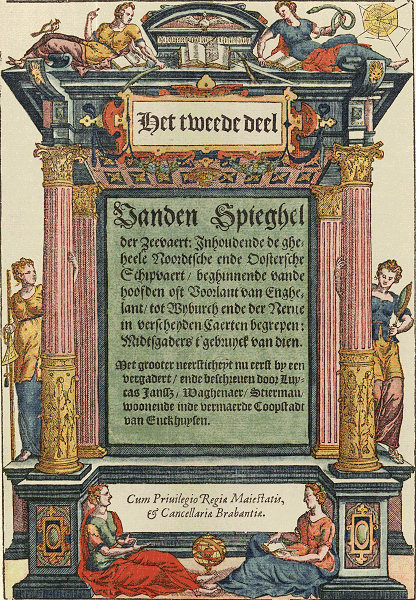 Het tweede deel
Vanden Spieghel
der Zeevaert: Inhoudende de ghe-
heele Noordtsche ende Oostersche
Schipvaert / beghinnende vande
hoofden oft Voorlant van Enghe-
lant / tot Wyburch ende der Nerue
in verscheyden Caerten begrepen:
Midtsgaders t'gebruyck van dien.
Met grooter neersticheyt nu eerst by een
vergadert / ende beschreven door Luy-
cas Jansz / Waghenaer / Stierman
woonende inde vermaerde Coopstadt
van Enckhuysen.
Cum Priuilegio Regiæ Maiestatis,
& Cancellariæ Brabantiæ.